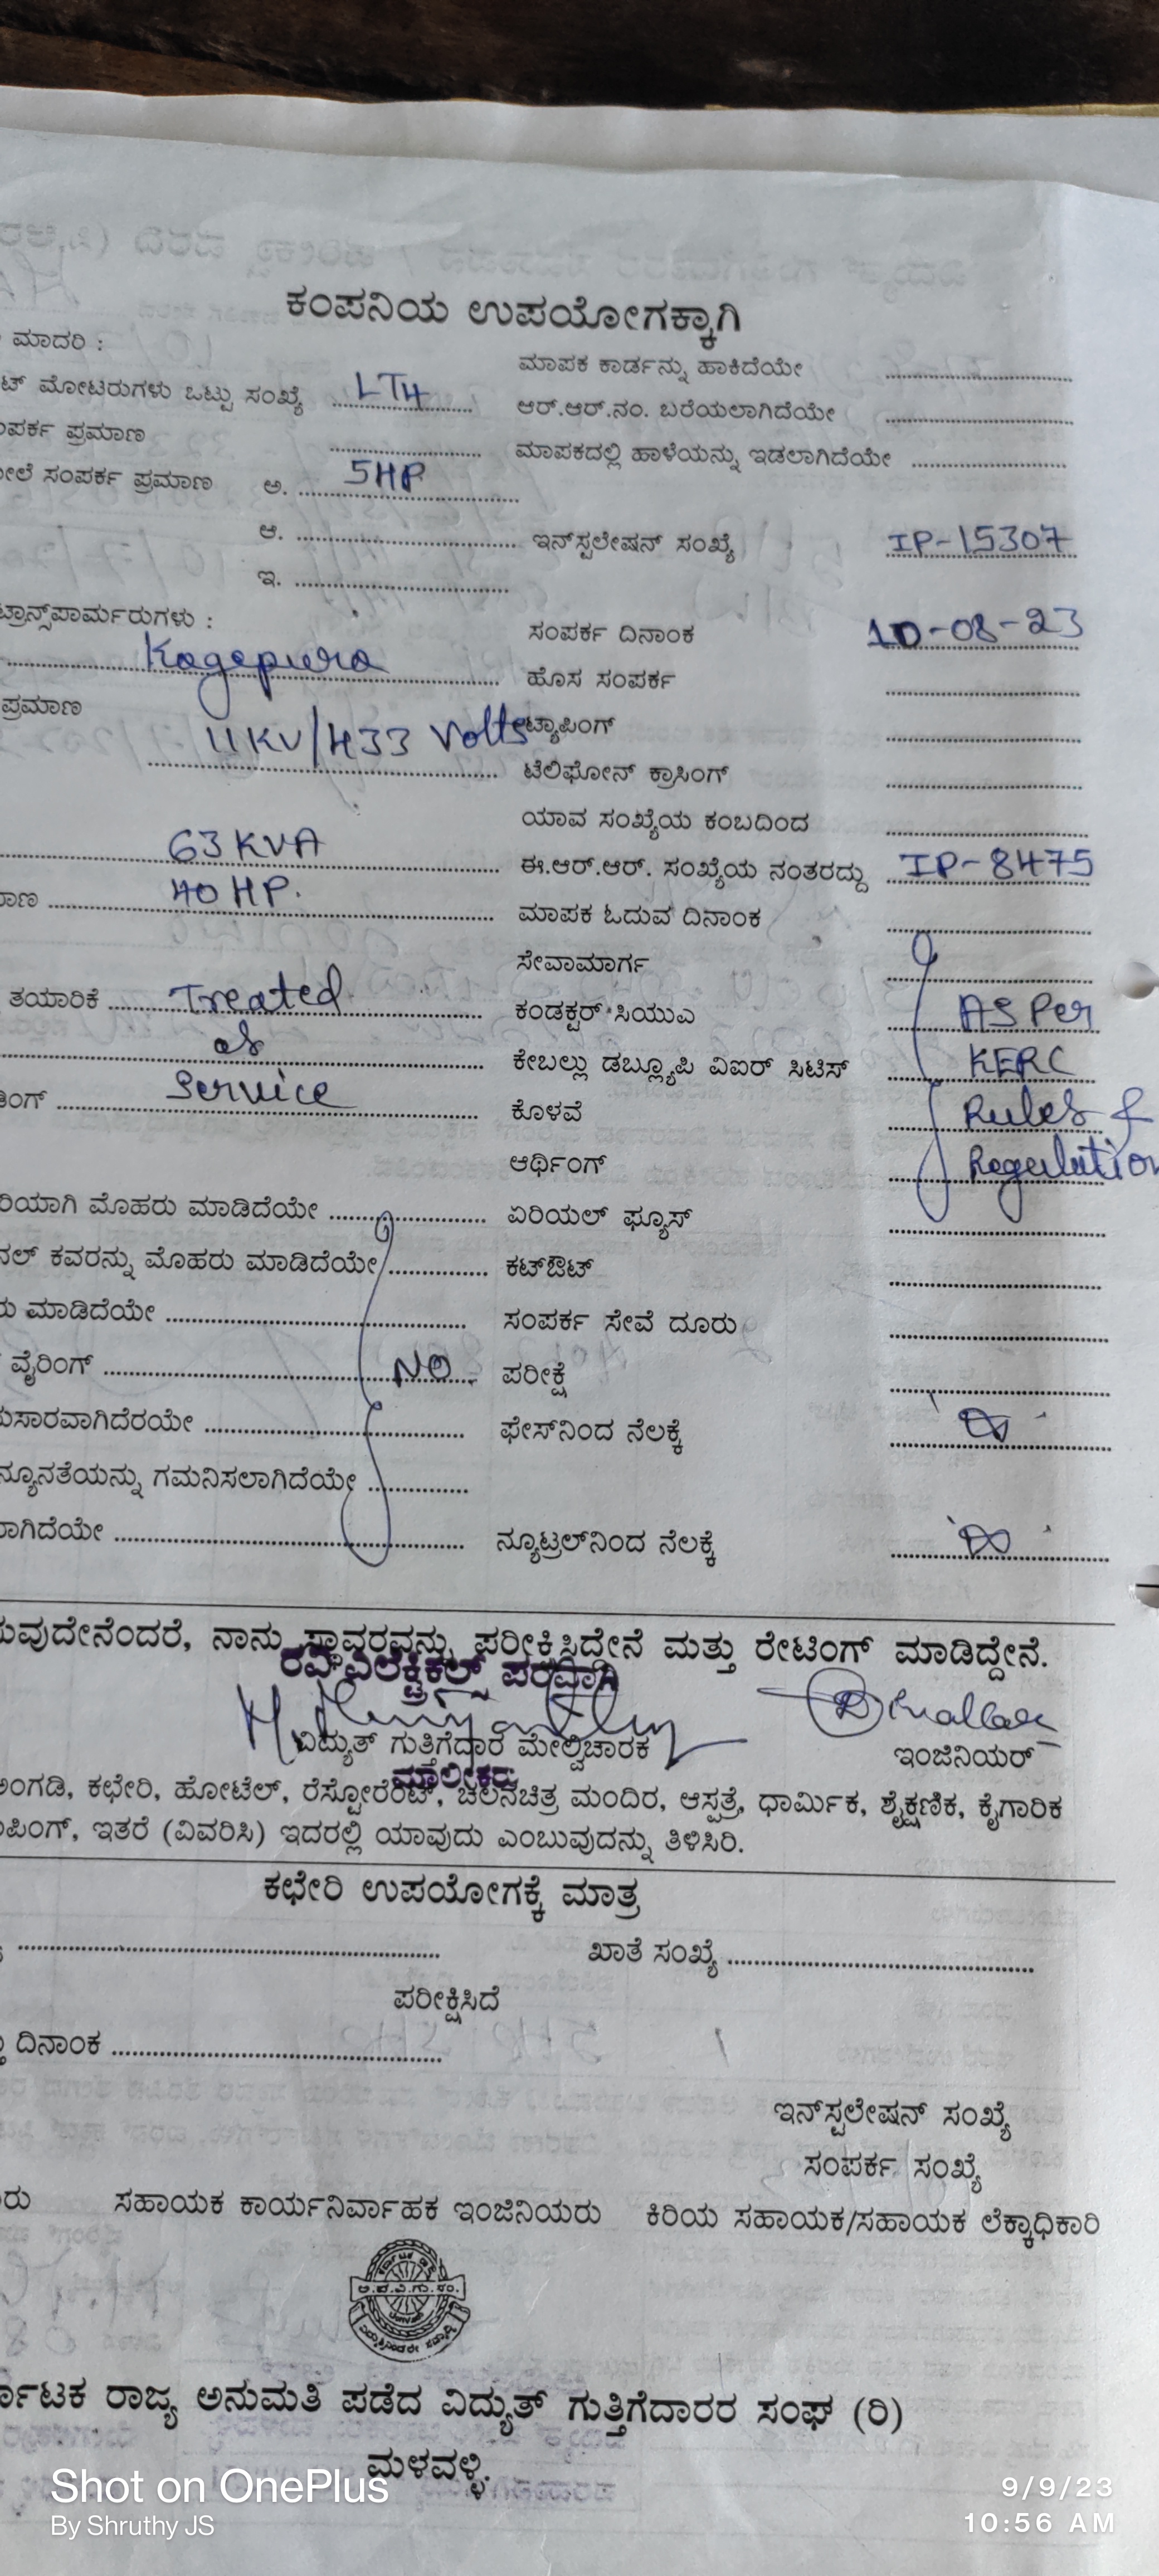 ಕಂಪನಿಯ ಉಪಯೋಗಕ್ಕಾಗಿ
ಮಾದರಿ :
ಮಾಪಕ ಕಾರ್ಡನ್ನು ಹಾಕಿದೆಯೇ
ಟ್ ಮೋಟರುಗಳು ಒಟ್ಟು ಸಂಖ್ಯೆ LT4
ಆರ್.ಆರ್.ನಂ. ಬರೆಯಲಾಗಿದೆಯೇ
ಪರ್ಕ ಪ್ರಮಾಣ
ಮಾಪಕದಲ್ಲಿ ಹಾಳೆಯನ್ನು ಇಡಲಾಗಿದೆಯೇ
ಲೆ ಸಂಪರ್ಕ ಪ್ರಮಾಣ ಅ. 5HP
ಆ.
ಇನ್‌ಸ್ಟಲೇಷನ್ ಸಂಖ್ಯೆ IP-15307
ಇ.
ಟ್ರಾನ್ಸ್‌ಪಾರ್ಮರುಗಳು :
ಸಂಪರ್ಕ ದಿನಾಂಕ 10-08-23
Kagepura
ಹೊಸ ಸಂಪರ್ಕ
ಪ್ರಮಾಣ
11KV/433 Volts
ಟ್ಯಾಪಿಂಗ್
ಟೆಲಿಫೋನ್ ಕ್ರಾಸಿಂಗ್
ಯಾವ ಸಂಖ್ಯೆಯ ಕಂಬದಿಂದ
63 KVA
ಈ.ಆರ್.ಆರ್. ಸಂಖ್ಯೆಯ ನಂತರದ್ದು IP-8475
ಮಾಣ 40 HP.
ಮಾಪಕ ಓದುವ ದಿನಾಂಕ
ಸೇವಾಮಾರ್ಗ
ತಯಾರಿಕೆ Treated
ಕಂಡಕ್ಟರ್ ಸಿಯುಎ AS Per
as
ಕೇಬಲ್ಲು ಡಬ್ಲ್ಯೂಪಿ ವಿಐರ್ ಸಿಟಿಸ್ KERC
ಡಿಂಗ್ Service
ಕೊಳವೆ Rules &
ಆರ್ಥಿಂಗ್ Regulation
ರಿಯಾಗಿ ಮೊಹರು ಮಾಡಿದೆಯೇ
ಏರಿಯಲ್ ಫ್ಯೂಸ್
ನಲ್ ಕವರನ್ನು ಮೊಹರು ಮಾಡಿದೆಯೇ
ಕಟ್‌ಔಟ್
ರು ಮಾಡಿದೆಯೇ
ಸಂಪರ್ಕ ಸೇವೆ ದೂರು
ವೈರಿಂಗ್ NO
ಪರೀಕ್ಷೆ
ನುಸಾರವಾಗಿದೆರಯೇ
ಫೇಸ್‌ನಿಂದ ನೆಲಕ್ಕೆ
ನ್ಯೂನತೆಯನ್ನು ಗಮನಿಸಲಾಗಿದೆಯೇ
ಲಾಗಿದೆಯೇ
ನ್ಯೂಟ್ರಲ್‌ನಿಂದ ನೆಲಕ್ಕೆ
ಸುವುದೇನೆಂದರೆ, ನಾನು ಸ್ಥಾವರವನ್ನು ಪರೀಕ್ಷಿಸಿದ್ದೇನೆ ಮತ್ತು ರೇಟಿಂಗ್ ಮಾಡಿದ್ದೇನೆ.
ರವಿ ಎಲೆಕ್ಟ್ರಿಕಲ್ಸ್ ಪರವಾಗಿ
ವಿದ್ಯುತ್ ಗುತ್ತಿಗೆದಾರ ಮೇಲ್ವಿಚಾರಕ
ಇಂಜಿನಿಯರ್
ಮಾಲೀಕರು
ಅಂಗಡಿ, ಕಛೇರಿ, ಹೋಟೆಲ್, ರೆಸ್ಟೋರೆಂಟ್, ಚಲನಚಿತ್ರ ಮಂದಿರ, ಆಸ್ಪತ್ರೆ, ಧಾರ್ಮಿಕ, ಶೈಕ್ಷಣಿಕ, ಕೈಗಾರಿಕ
ಪಿಂಗ್, ಇತರೆ (ವಿವರಿಸಿ) ಇದರಲ್ಲಿ ಯಾವುದು ಎಂಬುವುದನ್ನು ತಿಳಿಸಿರಿ.
ಕಛೇರಿ ಉಪಯೋಗಕ್ಕೆ ಮಾತ್ರ
ಖಾತೆ ಸಂಖ್ಯೆ
ಪರೀಕ್ಷಿಸಿದೆ
ದಿನಾಂಕ
ಇನ್‌ಸ್ಟಲೇಷನ್ ಸಂಖ್ಯೆ
ಸಂಪರ್ಕ ಸಂಖ್ಯೆ
ರು ಸಹಾಯಕ ಕಾರ್ಯನಿರ್ವಾಹಕ ಇಂಜಿನಿಯರು ಕಿರಿಯ ಸಹಾಯಕ/ಸಹಾಯಕ ಲೆಕ್ಕಾಧಿಕಾರಿ
ರ್ನಾಟಕ ರಾಜ್ಯ ಅನುಮತಿ ಪಡೆದ ವಿದ್ಯುತ್ ಗುತ್ತಿಗೆದಾರರ ಸಂಘ (ರಿ)
ಮಳವಳ್ಳಿ.
Shot on OnePlus
By Shruthy JS
9/9/23
10:56 AM